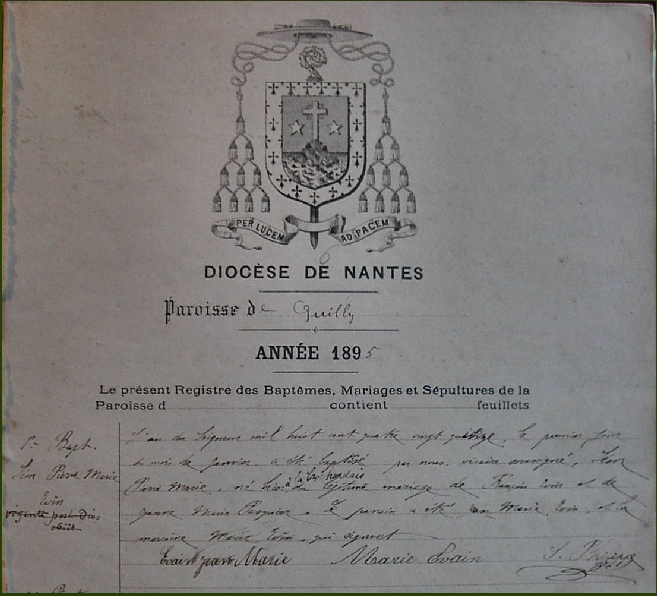 PER LUCEM AD PACEM
DIOCÈSE DE NANTES
Paroisse de Quilly
ANNÉE 1895
Le présent Registre des Baptêmes, Mariages et Sépultures de la
Paroisse d contient feuillets
1er Bapt.
Jean Pierre Marie
Evin
obiit
L'an du Seigneur mil huit cent quatre vingt quinze, le premier jour
du mois de janvier a été baptisé par nous, vicaire soussigné, Jean
Pierre Marie, né hier du légitime mariage de François Evin et de
Jeanne Marie. Le parrain a été Jean Marie Evin, et la
marraine Marie Evin, qui signent
Evain Jean Marie Marie Evain